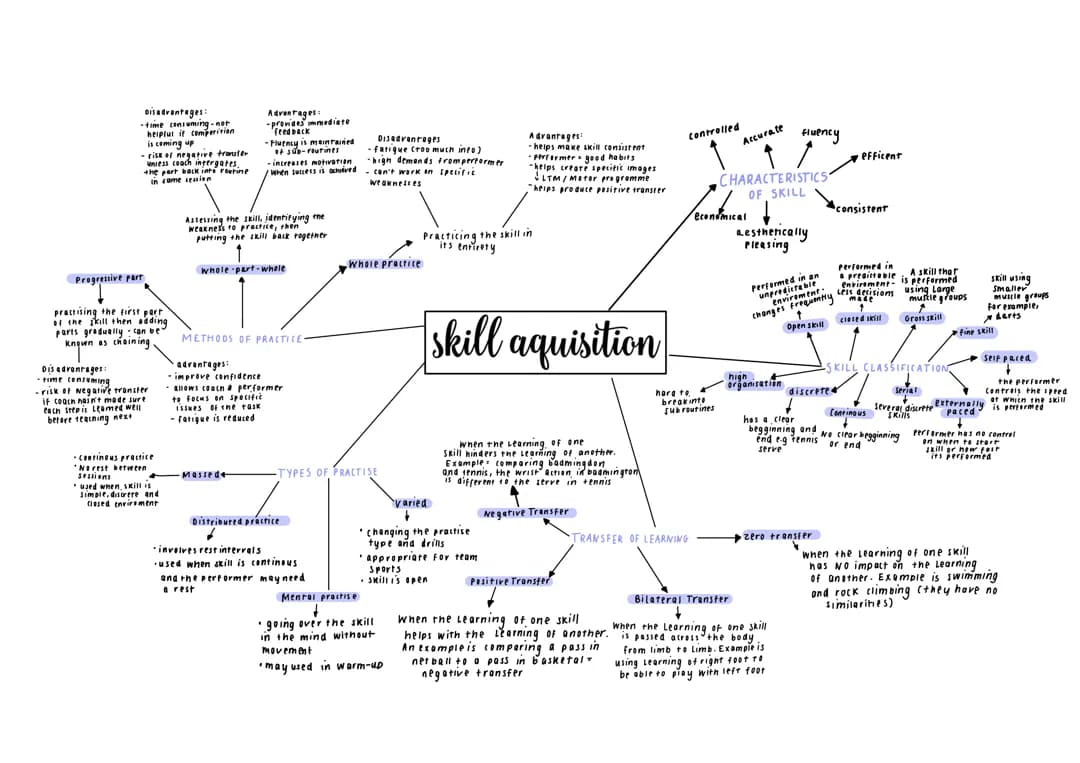 skill aquisition
METHODS OF PRACTICE
Progressive part
practising the first part
of the skill then adding
parts gradually - can be
known as chaining
Disadvantages:
- time consuming
- risk of negative transfer
if coach hasn't made sure
each step is learned well
before teaching next
advantages:
- improve confidence
- allows coach & performer
to focus on specific
issues of the task
- fatigue is reduced
Whole-part-whole
Assessing the skill, identifying the
weakness to practice, then
putting the skill back together
Disadvantages:
- time consuming - not
helpful if competition
is coming up
- risk of negative transfer
unless coach intergates
the part back into routine
in same session
Advantages:
- provides immediate
feedback
- Fluency is maintained
of sub-routines
- increases motivation
when success is achieved
Whole practice
Practicing the skill in
its entirety
Disadvantages
- fatigue (too much info)
- high demands from performer
- can't work on specific
weaknesses
Advantages:
- helps make skill consistent
- performer = good habits
- helps create specific images
↓ LTM / Motor programme
- helps produce positive transfer
CHARACTERISTICS
OF SKILL
controlled
Accurate
fluency
efficent
consistent
aesthetically
pleasing
Economical
SKILL CLASSIFICATION
Open skill
Performed in an
unpredictable
enviroment -
changes frequently
closed skill
Performed in
a predictable
enviroment -
less decisions
made
Gross skill
A skill that
is performed
using large
muscle groups
fine skill
skill using
smaller
muscle groups
for example,
darts
Self paced
the performer
controls the speed
at which the skill
is performed
Externally
paced
Performer has no control
on when to start
skill or how fast
its performed
Serial
Several discrete
skills
Continous
No clear begginning
or end
discrete
has a clear
begginning and
end e.g tennis
serve
high
organisation
hard to
break into
subroutines
TYPES OF PRACTISE
Massed
• Continous practice
• No rest between
sessions
• used when skill is
simple, discrete and
closed enviroment
Distributed practice
• involves rest intervals
• used when skill is continous
and the performer may need
a rest
Mental practise
• going over the skill
in the mind without
movement
• may used in warm-up
Varied
• changing the practise
type and drills
• appropriate for team
sports
• skill is open
TRANSFER OF LEARNING
Negative Transfer
When the learning of one
skill hinders the learning of another.
Example = comparing badmingdon
and tennis, the wrist action in badmington
is different to the serve in tennis
Positive Transfer
When the learning of one skill
helps with the learning of another.
An example is comparing a pass in
netball to a pass in basketal =
negative transfer
Bilateral Transfer
When the learning of one skill
is passed across the body
from limb to limb. Example is
using learning of right foot to
be able to play with left foot
zero transfer
When the learning of one skill
has NO impact on the learning
of another. Example is swimming
and rock climbing (they have no
similarities)